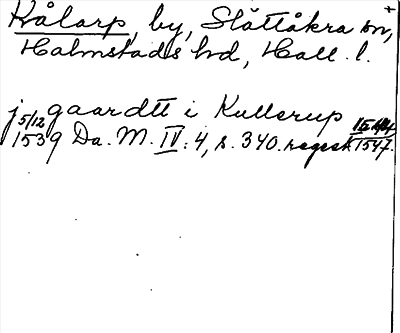 Kålarp, by, Slättåkra sn,
Halmstads hd, Hall. l.
j gaardtt i Kullerup
5/12 1539 Da. M. IV: 4, s. 340. regest 1547.